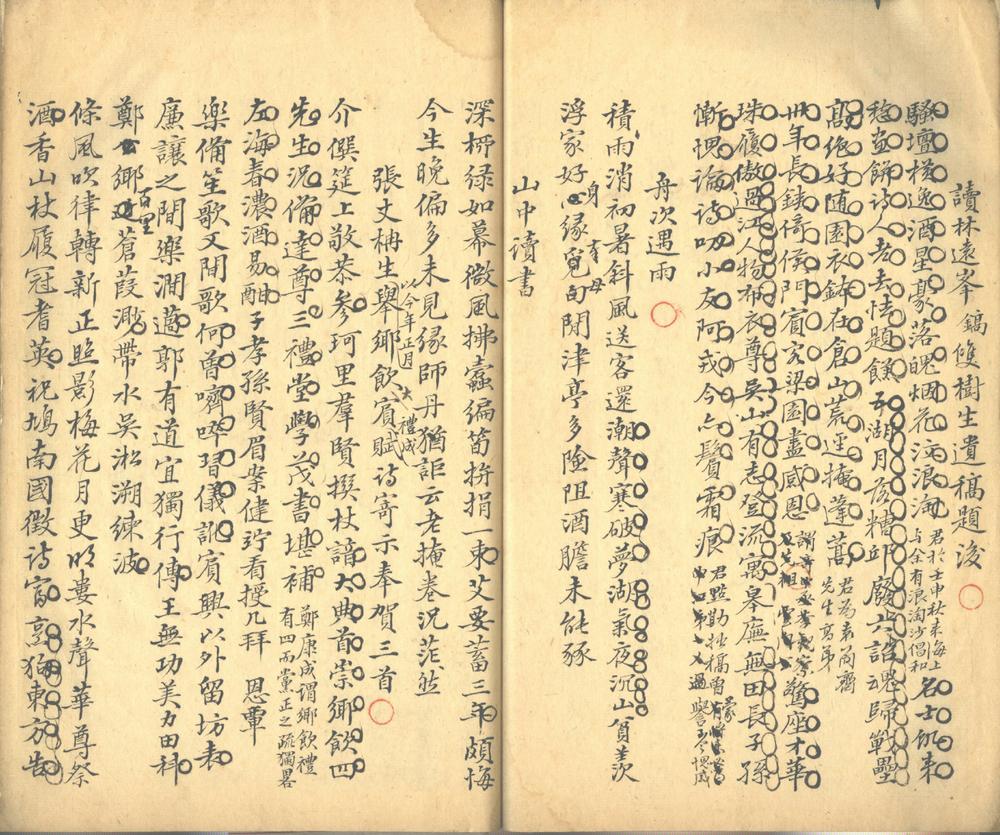 讀林遠峯鎬雙樹生遺稿題後
騷壇樹逸酒星豪落魄烟花浪淘君於壬申秋來海上与余有浪淘沙倡和名士飢來
画餅詩人老去怯題糕五湖月落糟邱廢六詔魂歸戰壘
高絕好随園衣鉢在倉山荒逕掩蓬蒿君為袁簡齋先生高弟
卅年長鋏倚侯門賓客梁園盡感恩驚座才華
珠履傲過江人物布衣尊吳山有志登流寓皋廡無田長子孫
慚愧論詩叨小友阿戎今亦鬢霜痕
舟次遇雨
積雨消初暑斜風送客還潮聲寒破夢湖氣夜沉山貧羨
浮家好身緣覓句閒津亭多險阻酒膽未能豩
山中讀書
深柳綠如幕微風拂蠹編笥拚捐一束艾要蓄三年頗悔
今生晚偏多未見緣師丹猶詎云老掩卷況茫然
張丈枏生以今年正月舉鄉飲大賓禮成賦詩寄示奉賀三首
介僎筵上敬恭參珂里羣賢撰杖諳大典首崇鄉飲四
先生況備達尊三禮堂學茂書堪補鄭康成謂鄉飲禮有四而黨正之疏獨畧
左海春濃酒易酣子孝孫賢眉案健竚看授几拜恩覃
樂備笙歌又間歌何曾嚌啐習儀訛賓興以外留坊表
廉讓之間樂澗薖郭有道宜獨行傳王無功美力田科
鄭公鄉百里蒼葭溯帶水吳淞溯練波
條風吹律轉新正照影梅花月更明婁水聲華尊祭
酒香山杖履冠耆英祝鳩南國徵詩富烹狗東方告